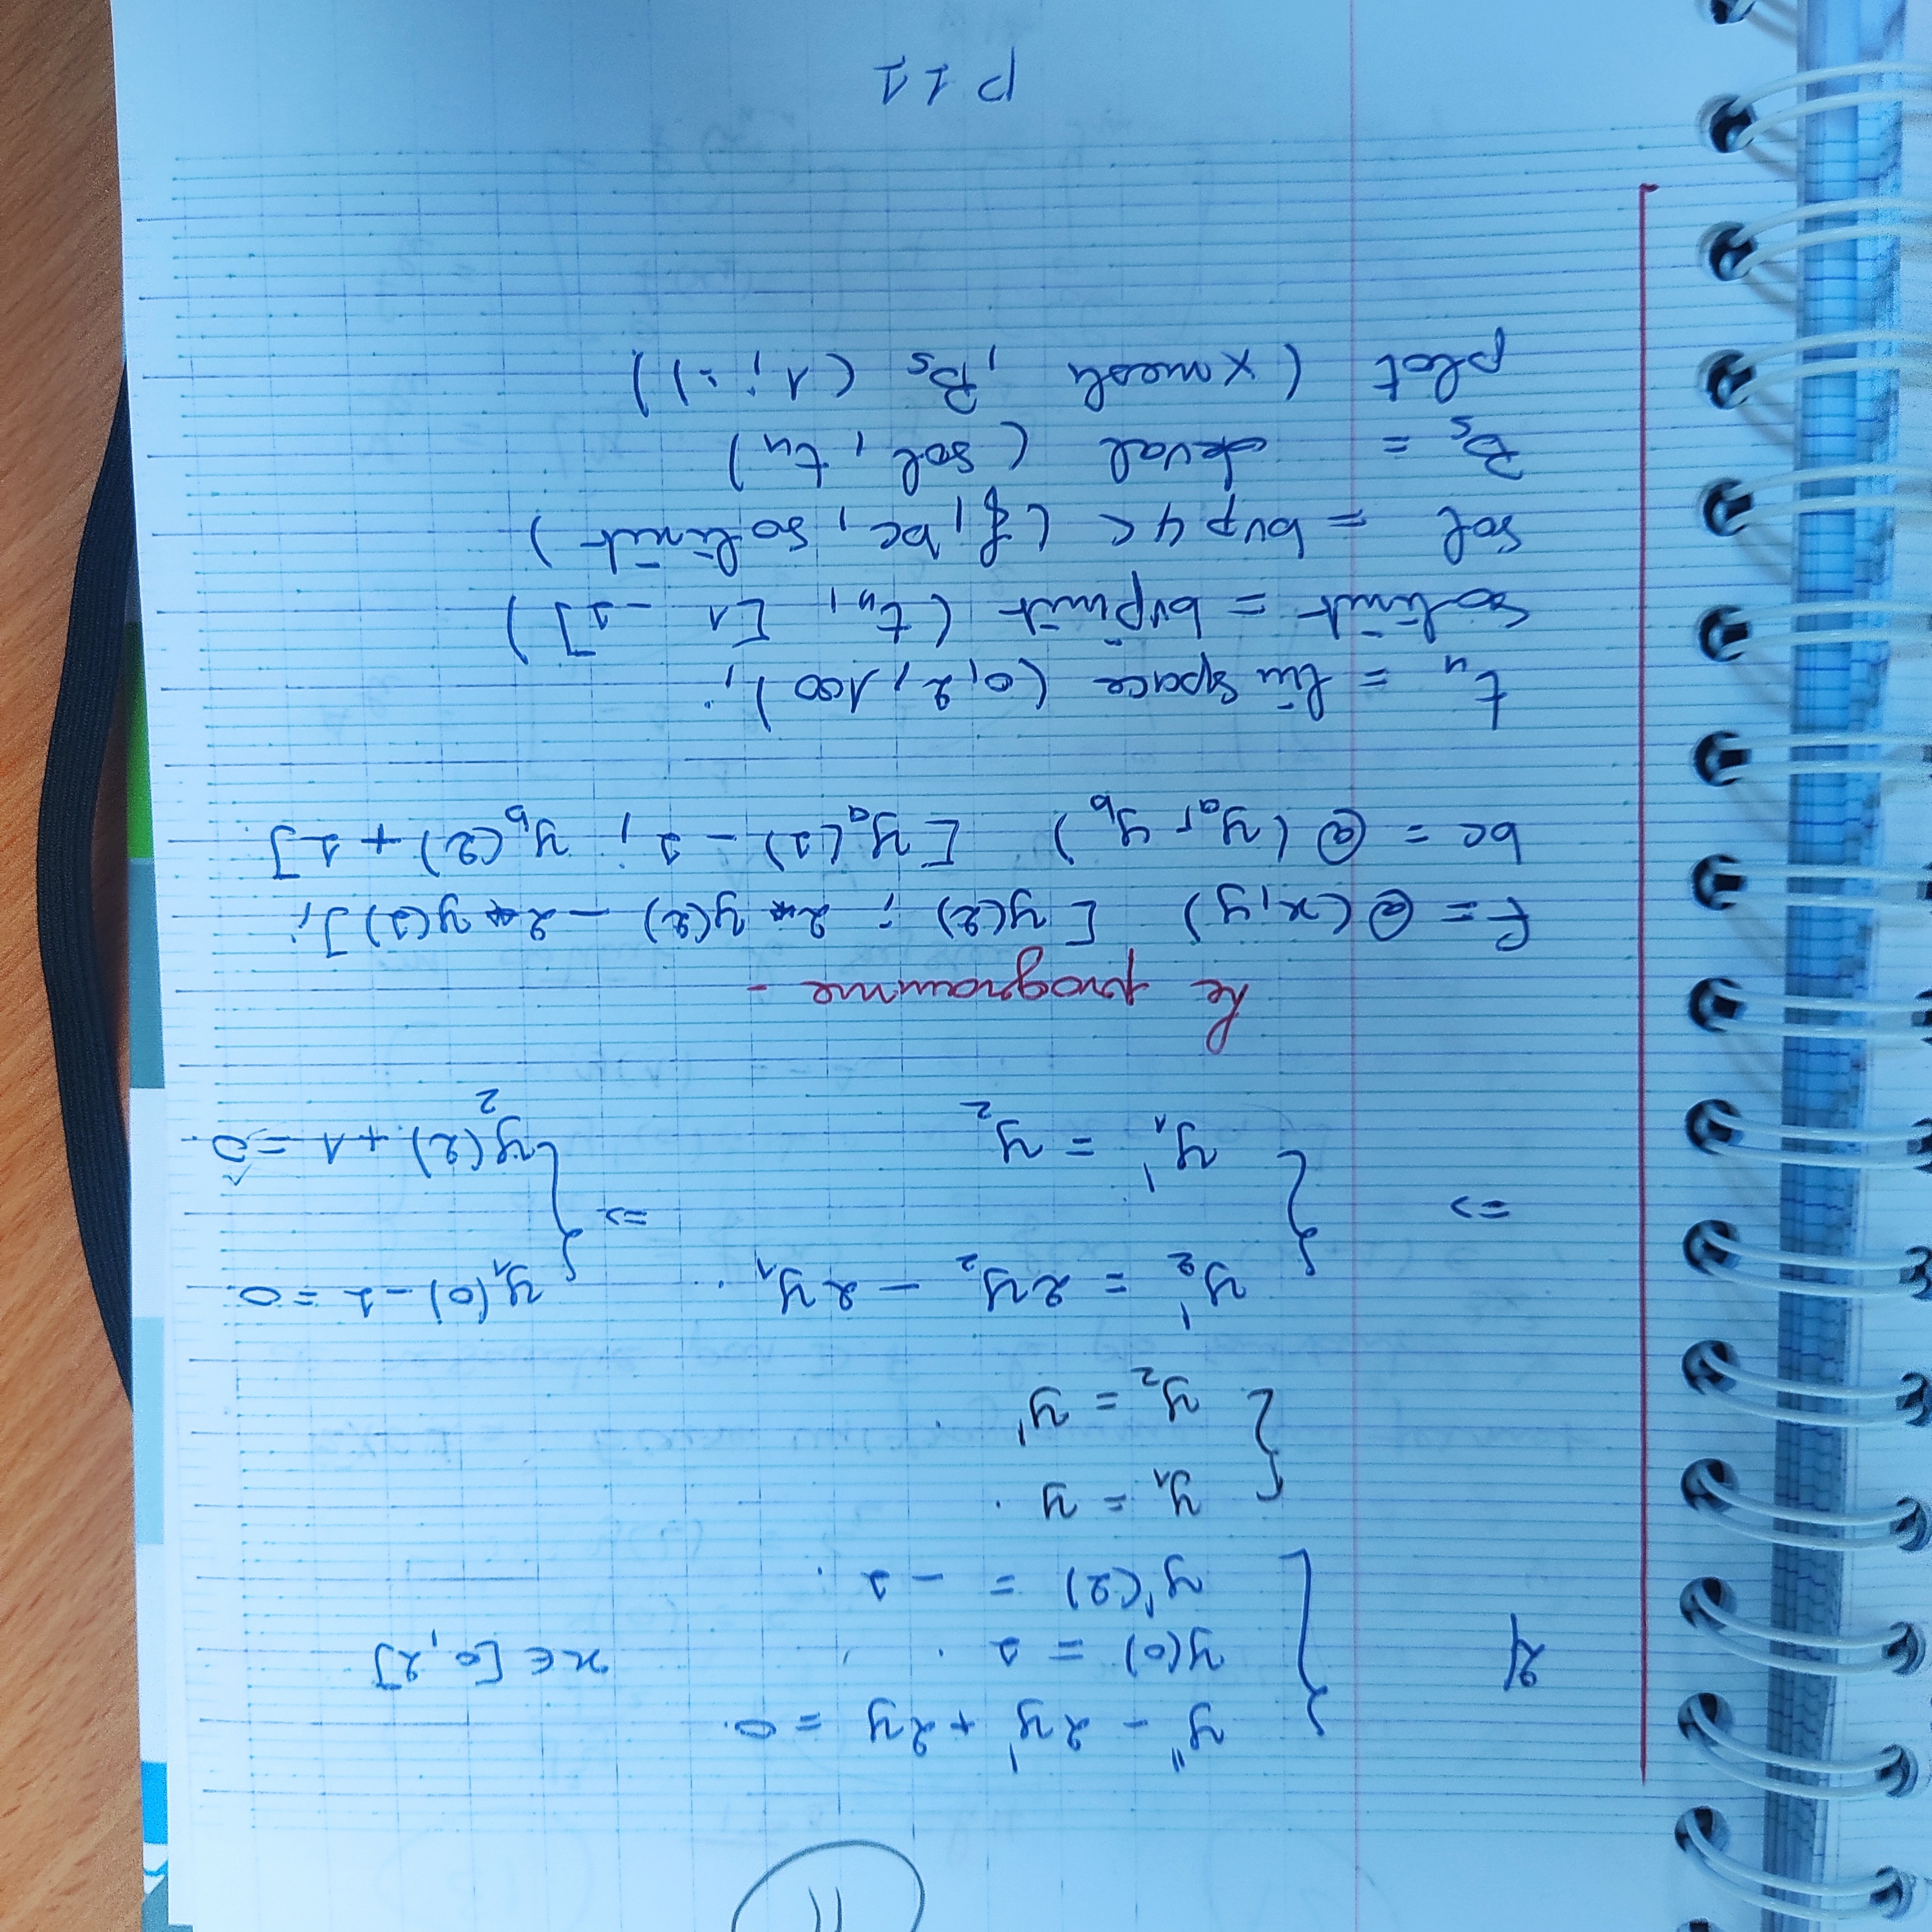 11
2/ { y'' - 2y' + 2y = 0.
y(0) = 1 . x ∈ [0, 2]
y'(2) = -1 .
{ y₁ = y .
y₂ = y' .
=> { y₂' = 2y₂ - 2y₁ . => { y₁(0) - 1 = 0.
y₁' = y₂ y₂(2) + 1 = 0.
Le programme -
f = @(x,y) [y(2) ; 2* y(2) - 2* y(1)];
bc = @(ya, yb) [ya(1) - 1 ; yb(2) + 1]
tn = linspace (0, 2, 100);
solinit = bvpinit (tn, [1 -1])
sol = bvp4c (f, bc, solinit)
Bs = deval (sol, tn)
plot (xmesh , Bs (1; :))
P 11